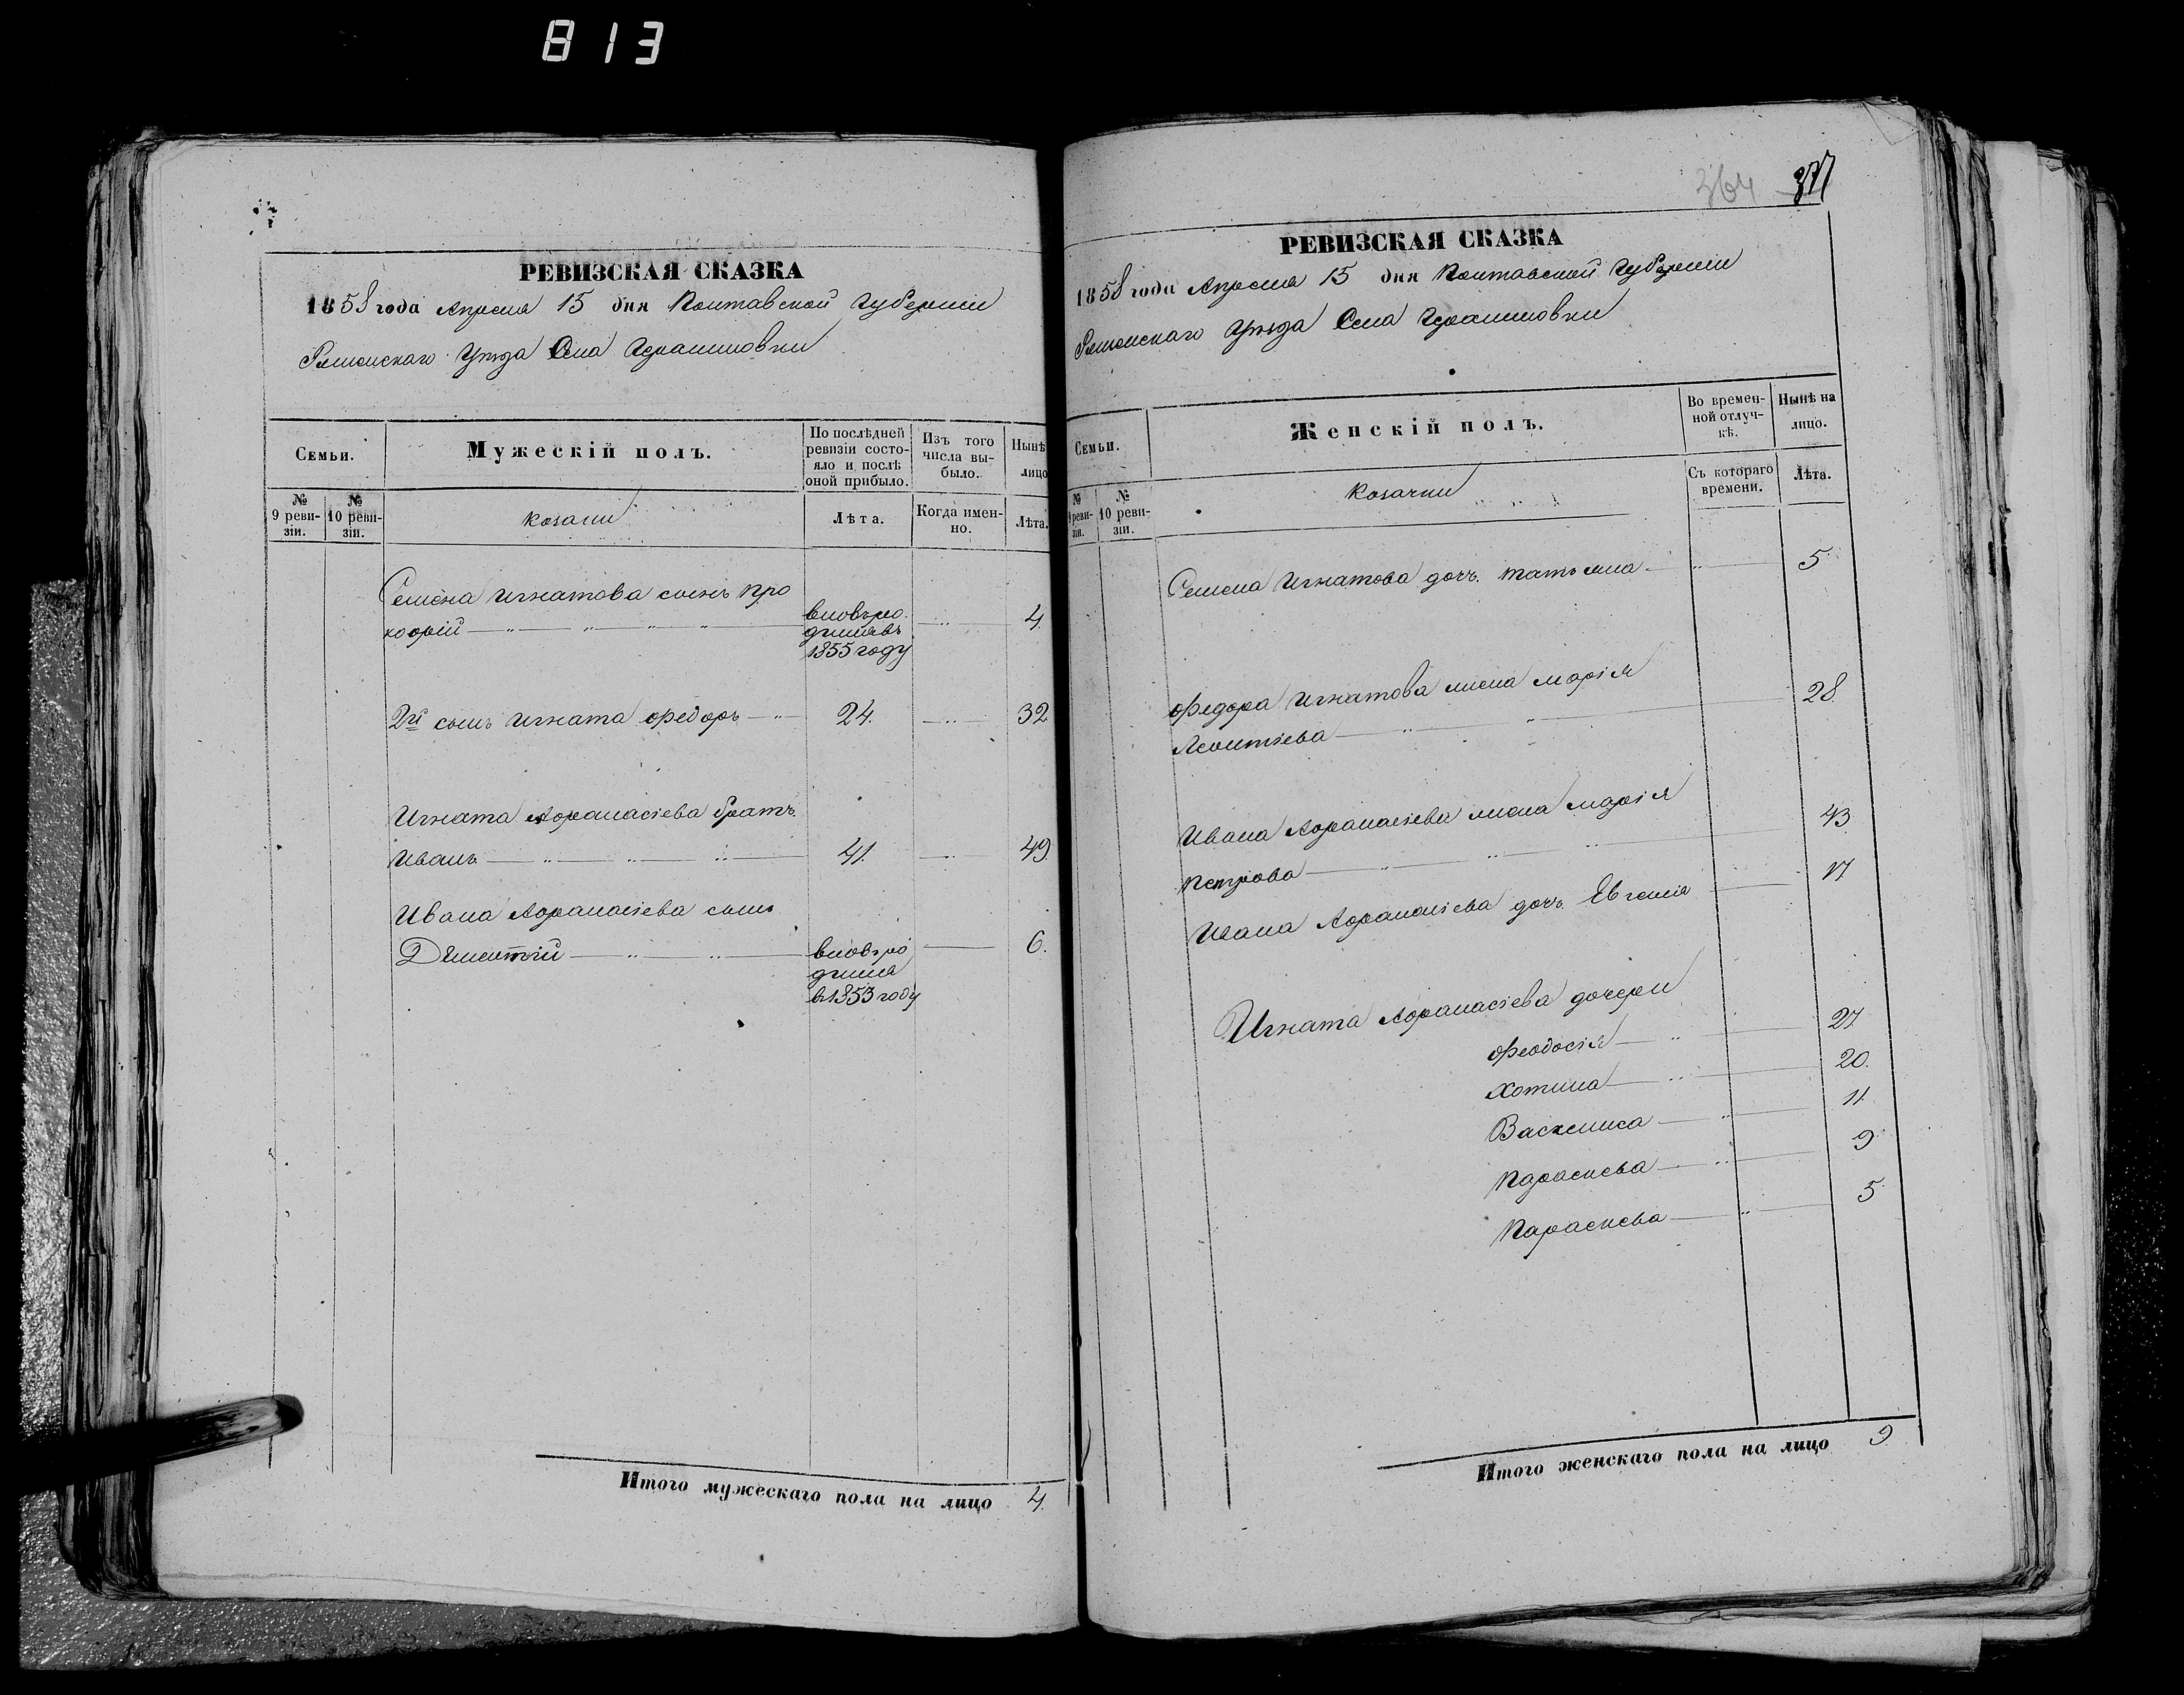 813
364 377
РЕВИЗСКАЯ СКАЗКА
1858 года Апреля 15 дня Полтавской Губерніи
Роменскаго Уѣзда Села Герасимовки
Семьи.
Мужескій полъ.
По послѣдней ревизіи состояло и послѣ оной прибыло.
Изъ того числа выбыло.
Нынѣ лицо
№ 9 ревизіи.
№ 10 ревизіи.
Козаки
Лѣта.
Когда именно.
Лѣта.
Семена Игнатова сынъ Про
кофій вновьро 4.
дился въ
1855 году
2й сынъ Игната Федоръ 24. 32
Игната Афанасіева братъ
Иванъ 41. 49.
Ивана Афанасіева сынъ
Дементій вновьро 6.
дился
в 1853 году
Итого мужескаго пола на лицо 4.
РЕВИЗСКАЯ СКАЗКА
1858 года Апреля 15 дня Полтавской Губерніи
Роменскаго Уѣзда Села Герасимовки
Семьи.
Женскій полъ.
Во временной отлучкѣ.
Нынѣ на лицо.
№ 9 ревизіи.
№ 10 ревизіи.
Козачки
Съ котораго времени.
Лѣта.
Семена Игнатова дочь Татьяна 5
Федора Игнатова жена Марія 28.
Леонтіева
Ивана Афанасіева жена Марія 43
Петрова
Ивана Афанасіева дочь Евгенія 17
Игната Афанасіева дочери
Феодосія 27
Хотина 20.
Василиса 11.
Параскева 9
Параскева 5
Итого женскаго пола на лицо 9